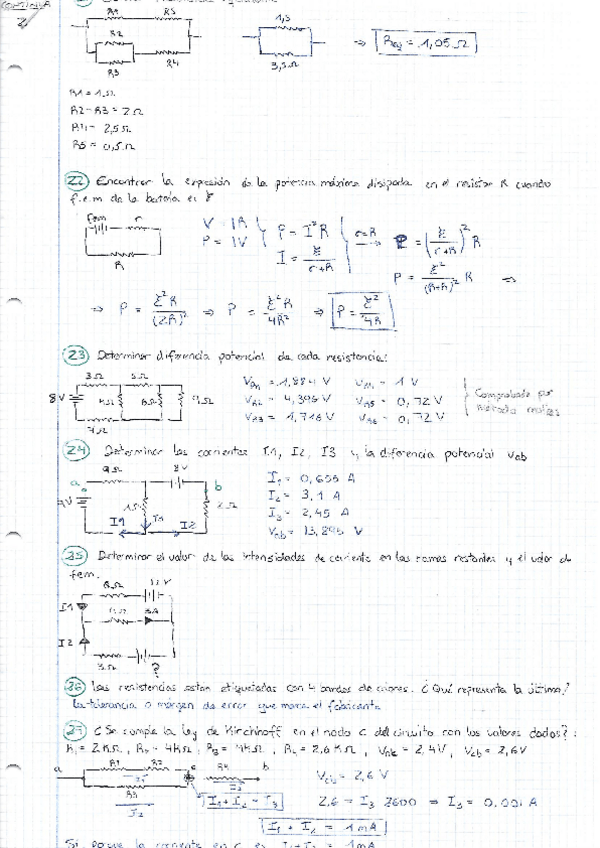 2
R1 R5
R2
R3 R4
1,5
3,5Ω
⇒ Req = 1,05 Ω
R1 = 1Ω
R2-R3 = 2Ω
R4 = 2,5Ω
R5 = 0,5Ω
22 Encontrar la expresión de la potencia máxima disipada en el resistor R cuando
f.e.m de la batería es ξ
fem r
R
V = IR
P = IV
P = I²R
I = ξ/(r+R)
r=R
P = (ξ/(r+R))² R
P = ξ²/(R+R)² R ⇒
⇒ P = ξ²R/(2R)² ⇒ P = ξ²R/4R² ⇒ P = ξ²/4R
23 Determinar diferencia potencial de cada resistencia:
8V 3Ω 5Ω
VR2 = 4,396 V VR5 = 0,72 V
VR3 = 1,716 V VR6 = 0,72 V
Comprobado por
método mallas
24 Determinar las corrientes I1, I2, I3 y la diferencia potencial Vab
a 9Ω 8V b
I1 I2
I1 = 0,655 A
I2 = 3,1 A
I3 = 2,45 A
Vab = 13,895 V
25 Determinar el valor de las intensidades de corriente en las ramas restantes y el valor de
fem.
I1
I2
3Ω ?
26 Las resistencias están etiquetadas con 4 bandas de colores. ¿Qué representa la última?
La tolerancia o margen de error que marca el fabricante
27 ¿Se cumple la ley de Kirchhoff en el nodo c del circuito con los valores dados?:
R1 = 2KΩ, R2 = 4KΩ, R3 = 4KΩ, R4 = 2,6KΩ, Vac = 2,4V, Vcb = 2,6V
a R1 R2 c R4 b
R3
I2
I1 + I2 = I3
Vcb = 2,6 V
2,6 = I3 2600 ⇒ I3 = 0.001 A
I1 + I2 = 1mA
Sí, porque la corriente en c es I1+I2 = 1mA